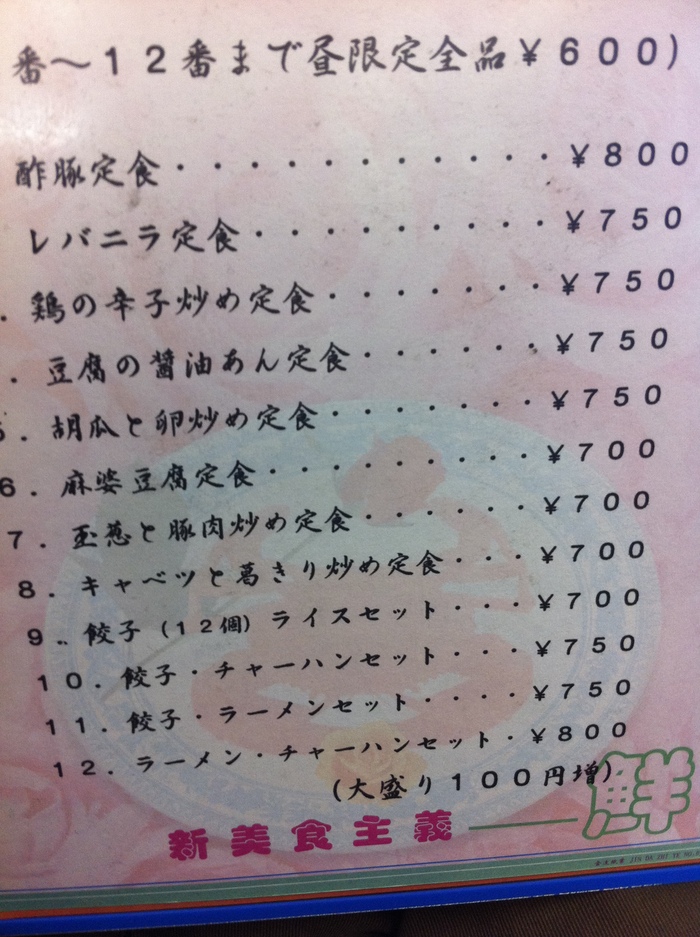 番～12番まで昼限定全品￥600)
酢豚定食・・・・・・・・・・・￥800
レバニラ定食・・・・・・・・・￥750
．鶏の辛子炒め定食・・・・・・・￥750
．豆腐の醤油あん定食・・・・・・￥750
5．胡瓜と卵炒め定食・・・・・・・￥750
6．麻婆豆腐定食・・・・・・・・・￥700
7．玉葱と豚肉炒め定食・・・・・・￥700
8．キャベツと葛きり炒め定食・・・￥700
9．餃子（12個）ライスセット・・・￥700
10．餃子・チャーハンセット・・・￥750
11．餃子・ラーメンセット・・・・￥750
12．ラーメン・チャーハンセット・￥800
（大盛り100円増）
新美食主義 鮮